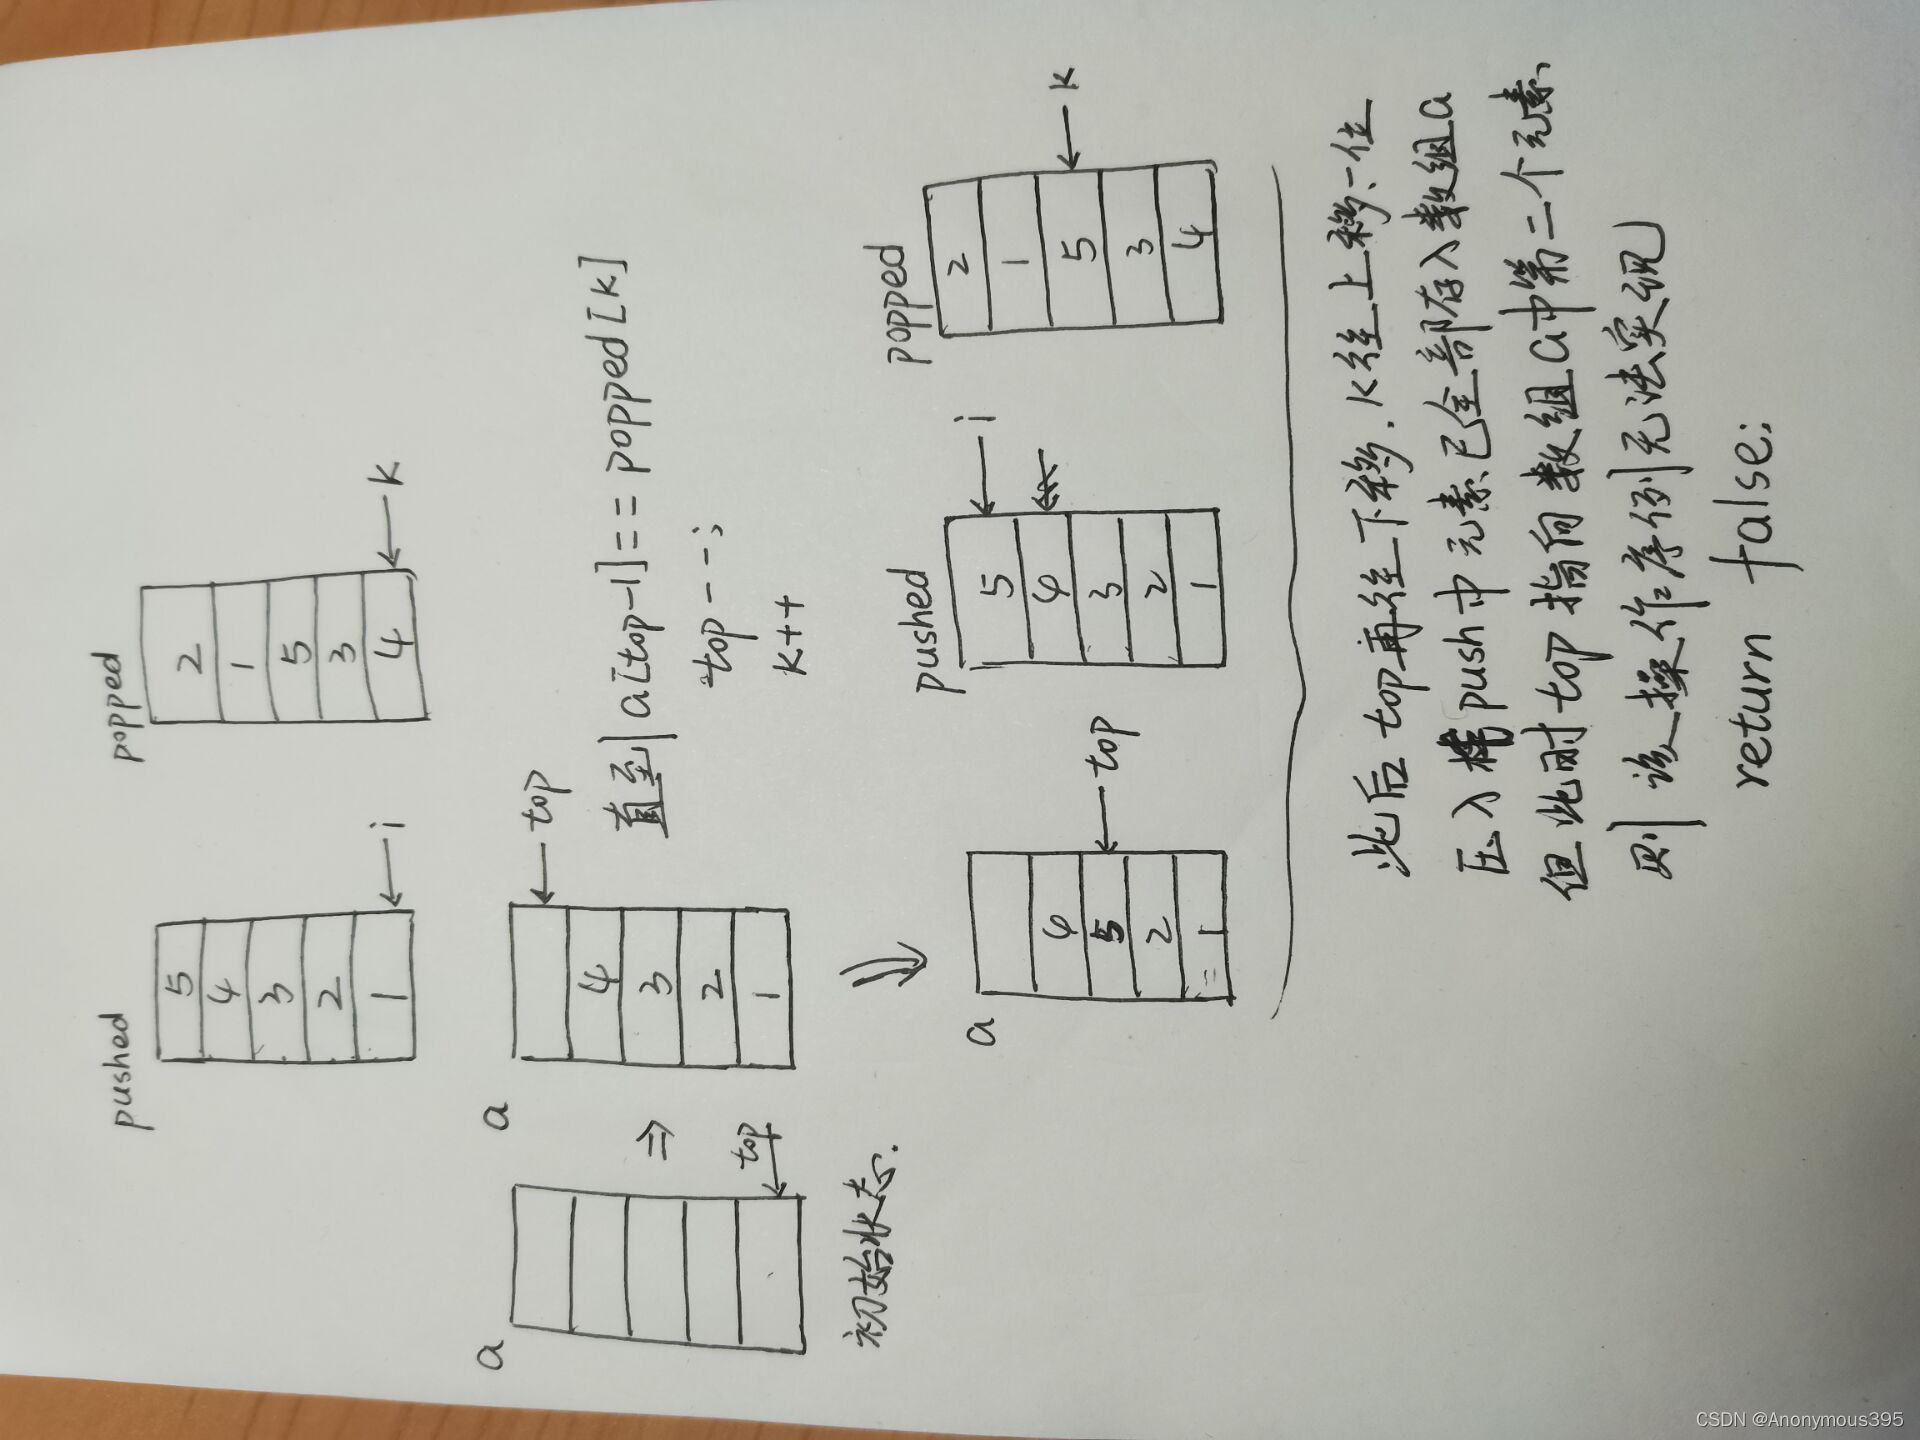 pushed
popped
5
4
3
2
1
←i
2
1
5
3
4
←k
a
top
初始状态.
⇒
a
4
3
2
1
←top
直至 a[top-1]==popped[k]
top--;
k++
a
4
5
2
1
←top
pushed
5
4
3
2
1
←i
popped
2
1
5
3
4
←k
此后top再往下移.k往上移一位
压入push中元素已全部存入数组a
但此时top指向数组a中第二个元素
则该操作序列无法实现
return false;
CSDN @Anonymous395